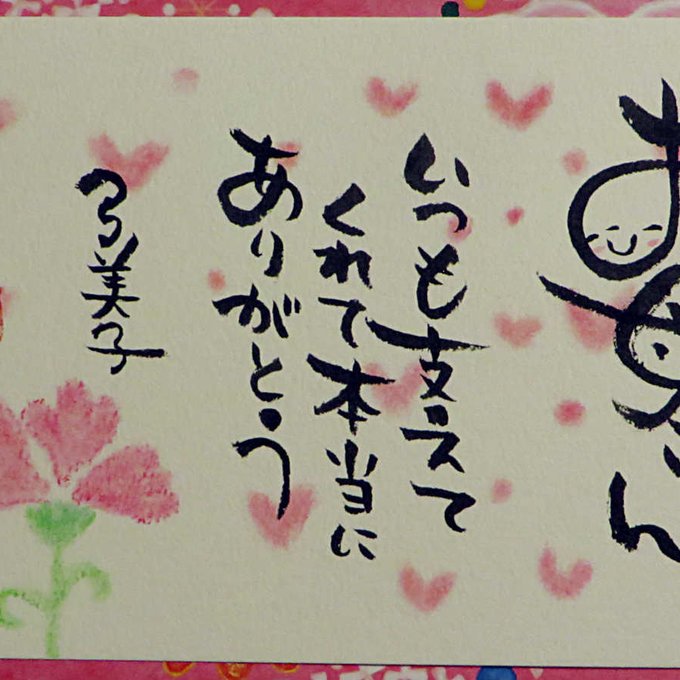 お母さん
いつも支えて
くれて本当に
ありがとう
多美子